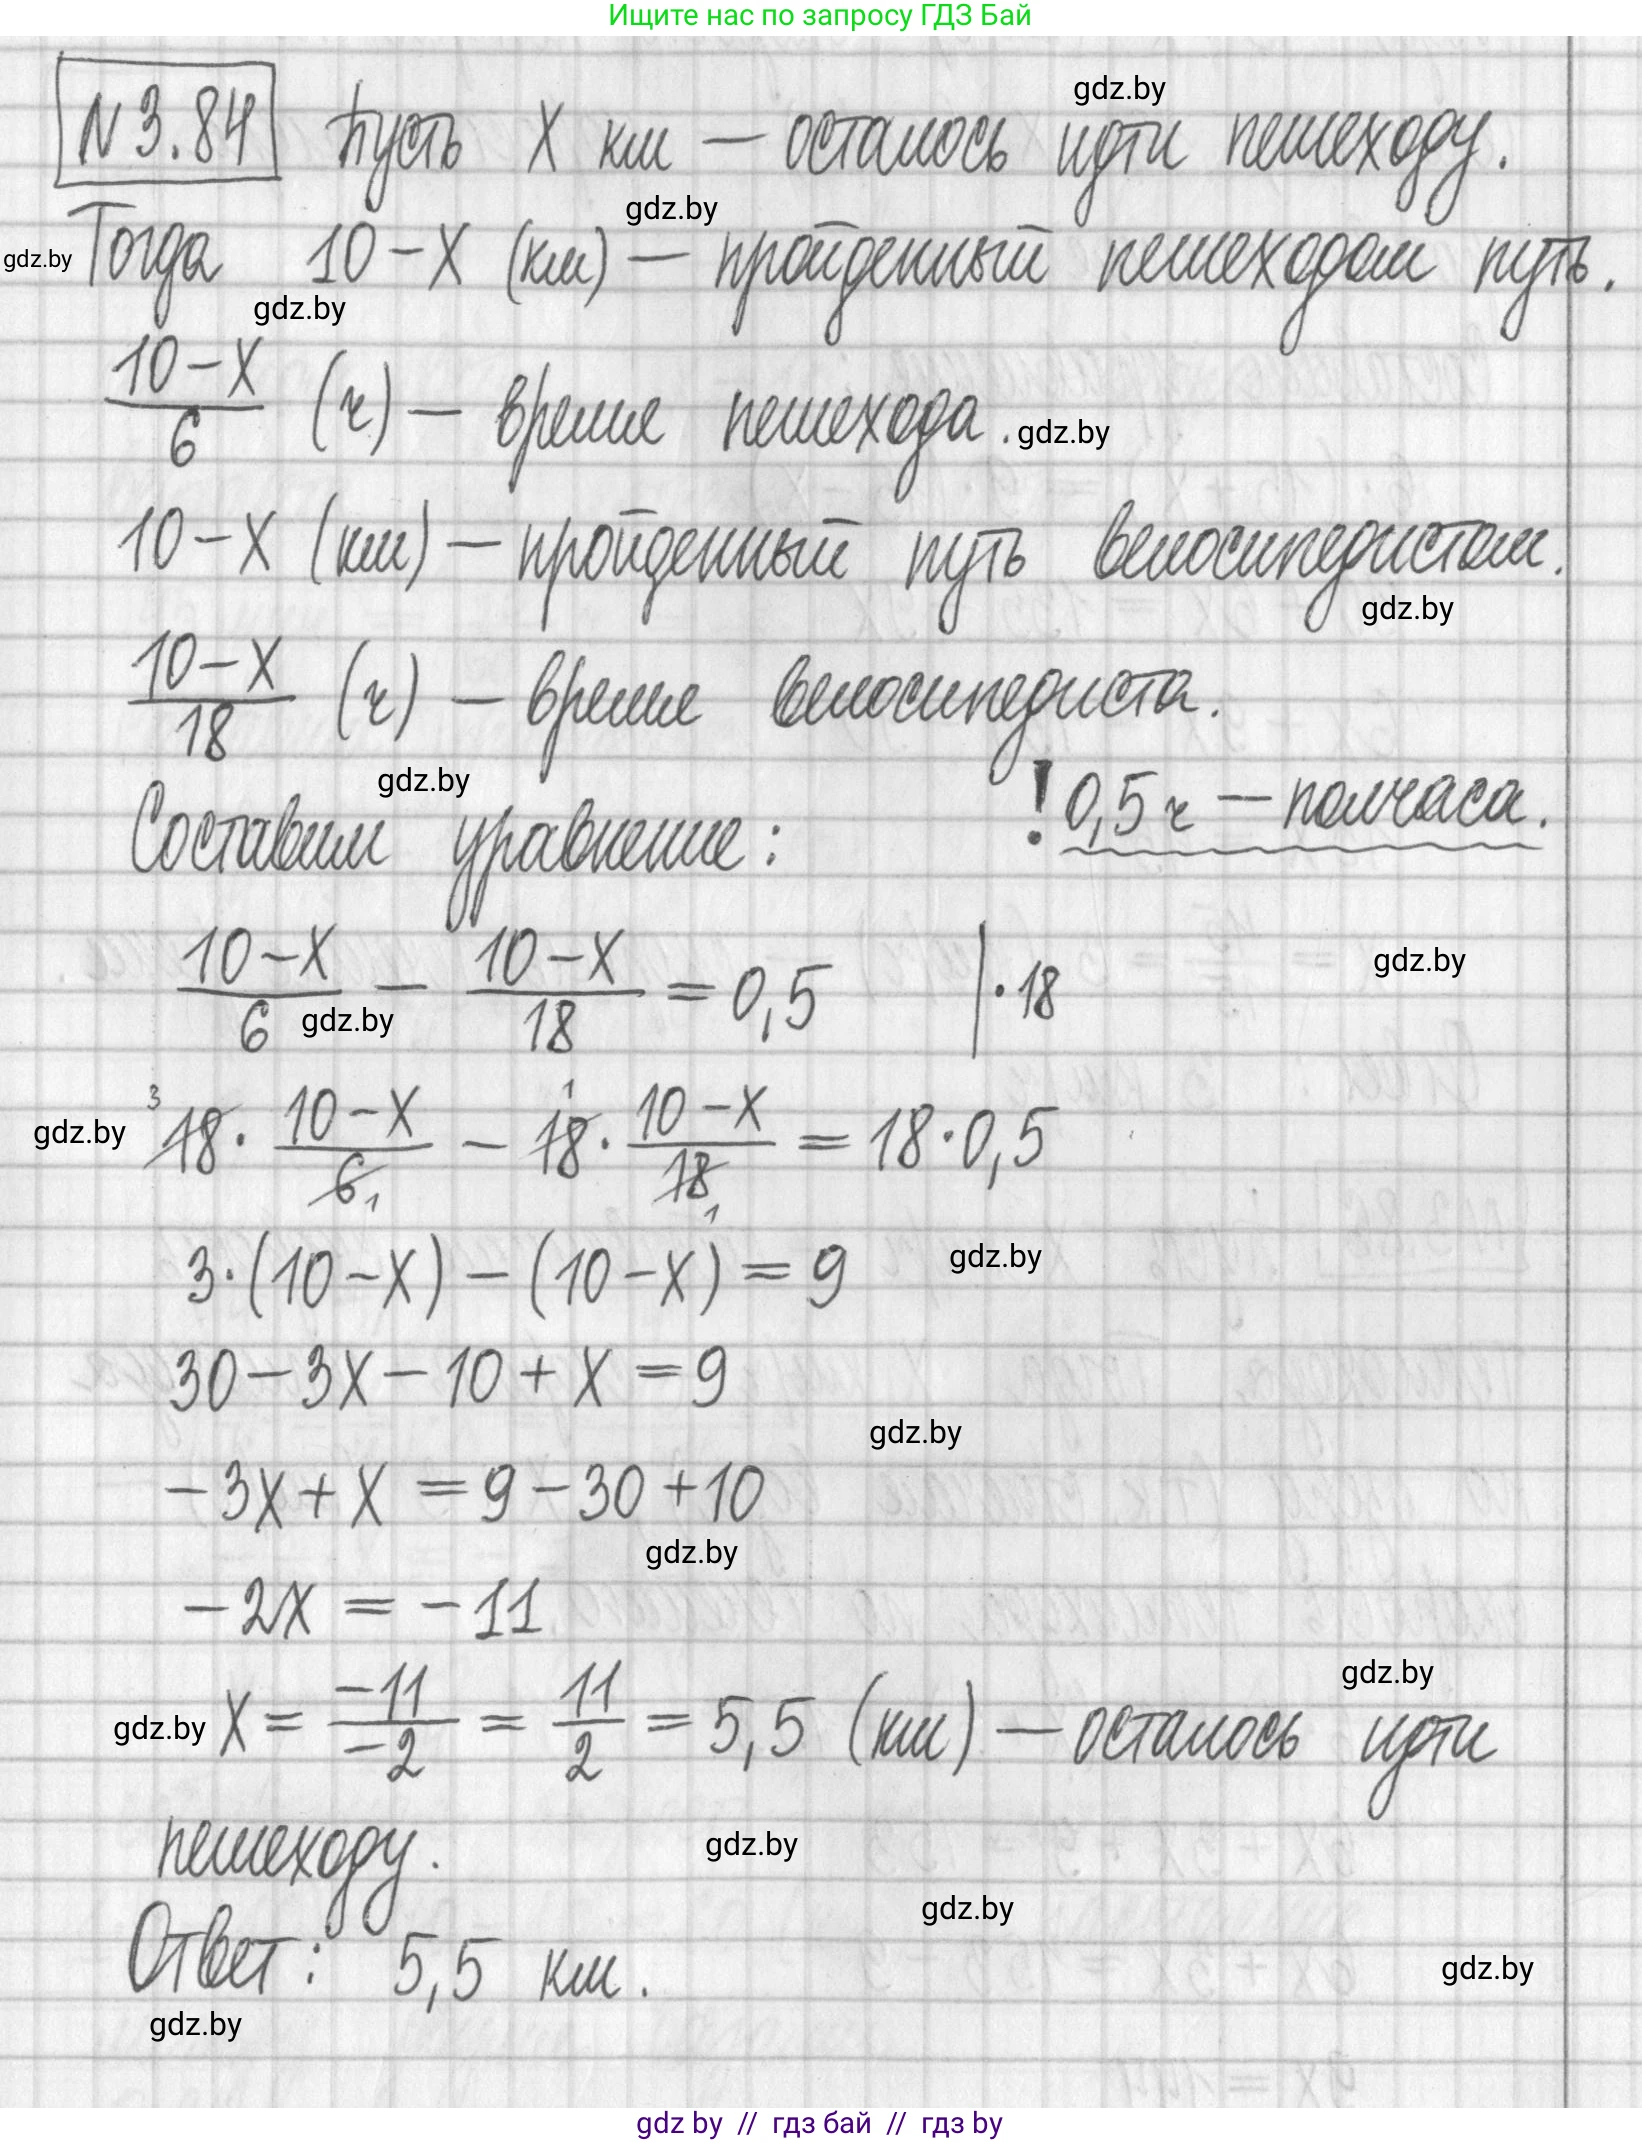 Ищите нас по запросу ГДЗ Бай
gdz.by
N 3.84 Пусть X км – осталось идти пешеходу.
gdz.by
gdz.by Тогда 10 – X (км) – пройденный пешеходом путь.
gdz.by
10 – X / 6 (ч) – время пешехода. gdz.by
10 – X (км) – пройденный путь велосипедистом.
gdz.by
10 – X / 18 (ч) – время велосипедиста.
gdz.by
Составим уравнение: ! 0,5 ч – полчаса.
10 – X / 6 – 10 – X / 18 = 0,5 | · 18
gdz.by
gdz.by
gdz.by 3 18 · 10 – X / 6 1 – 1 18 · 10 – X / 18 1 = 18 · 0,5
3 · (10 – X) – (10 – X) = 9 gdz.by
30 – 3X – 10 + X = 9
gdz.by
– 3X + X = 9 – 30 + 10
gdz.by
– 2X = – 11
gdz.by
gdz.by X = – 11 / – 2 = 11 / 2 = 5,5 (км) – осталось идти
пешеходу. gdz.by
gdz.by
Ответ: 5,5 км. gdz.by
gdz.by
gdz by // гдз бай // гдз by